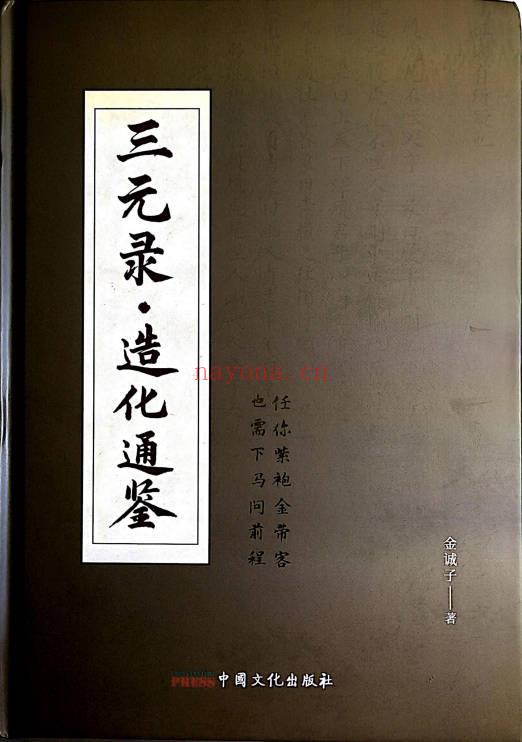 三元录·造化通鉴
nayona.cn
任你紫袍金带客
也需下马问前程
金诚子——著
PRESS 中國文化出版社